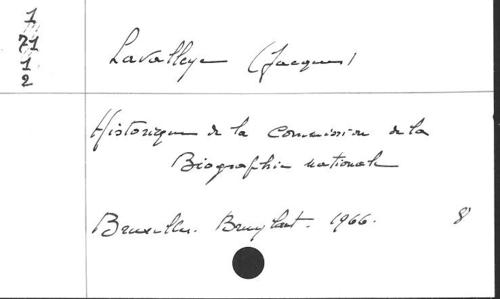 1
71
1
2
Lavalleye (Jacques)
Historique de la Commission de la
Biographie nationale
Bruxelles. Bruylant. 1966. 8°